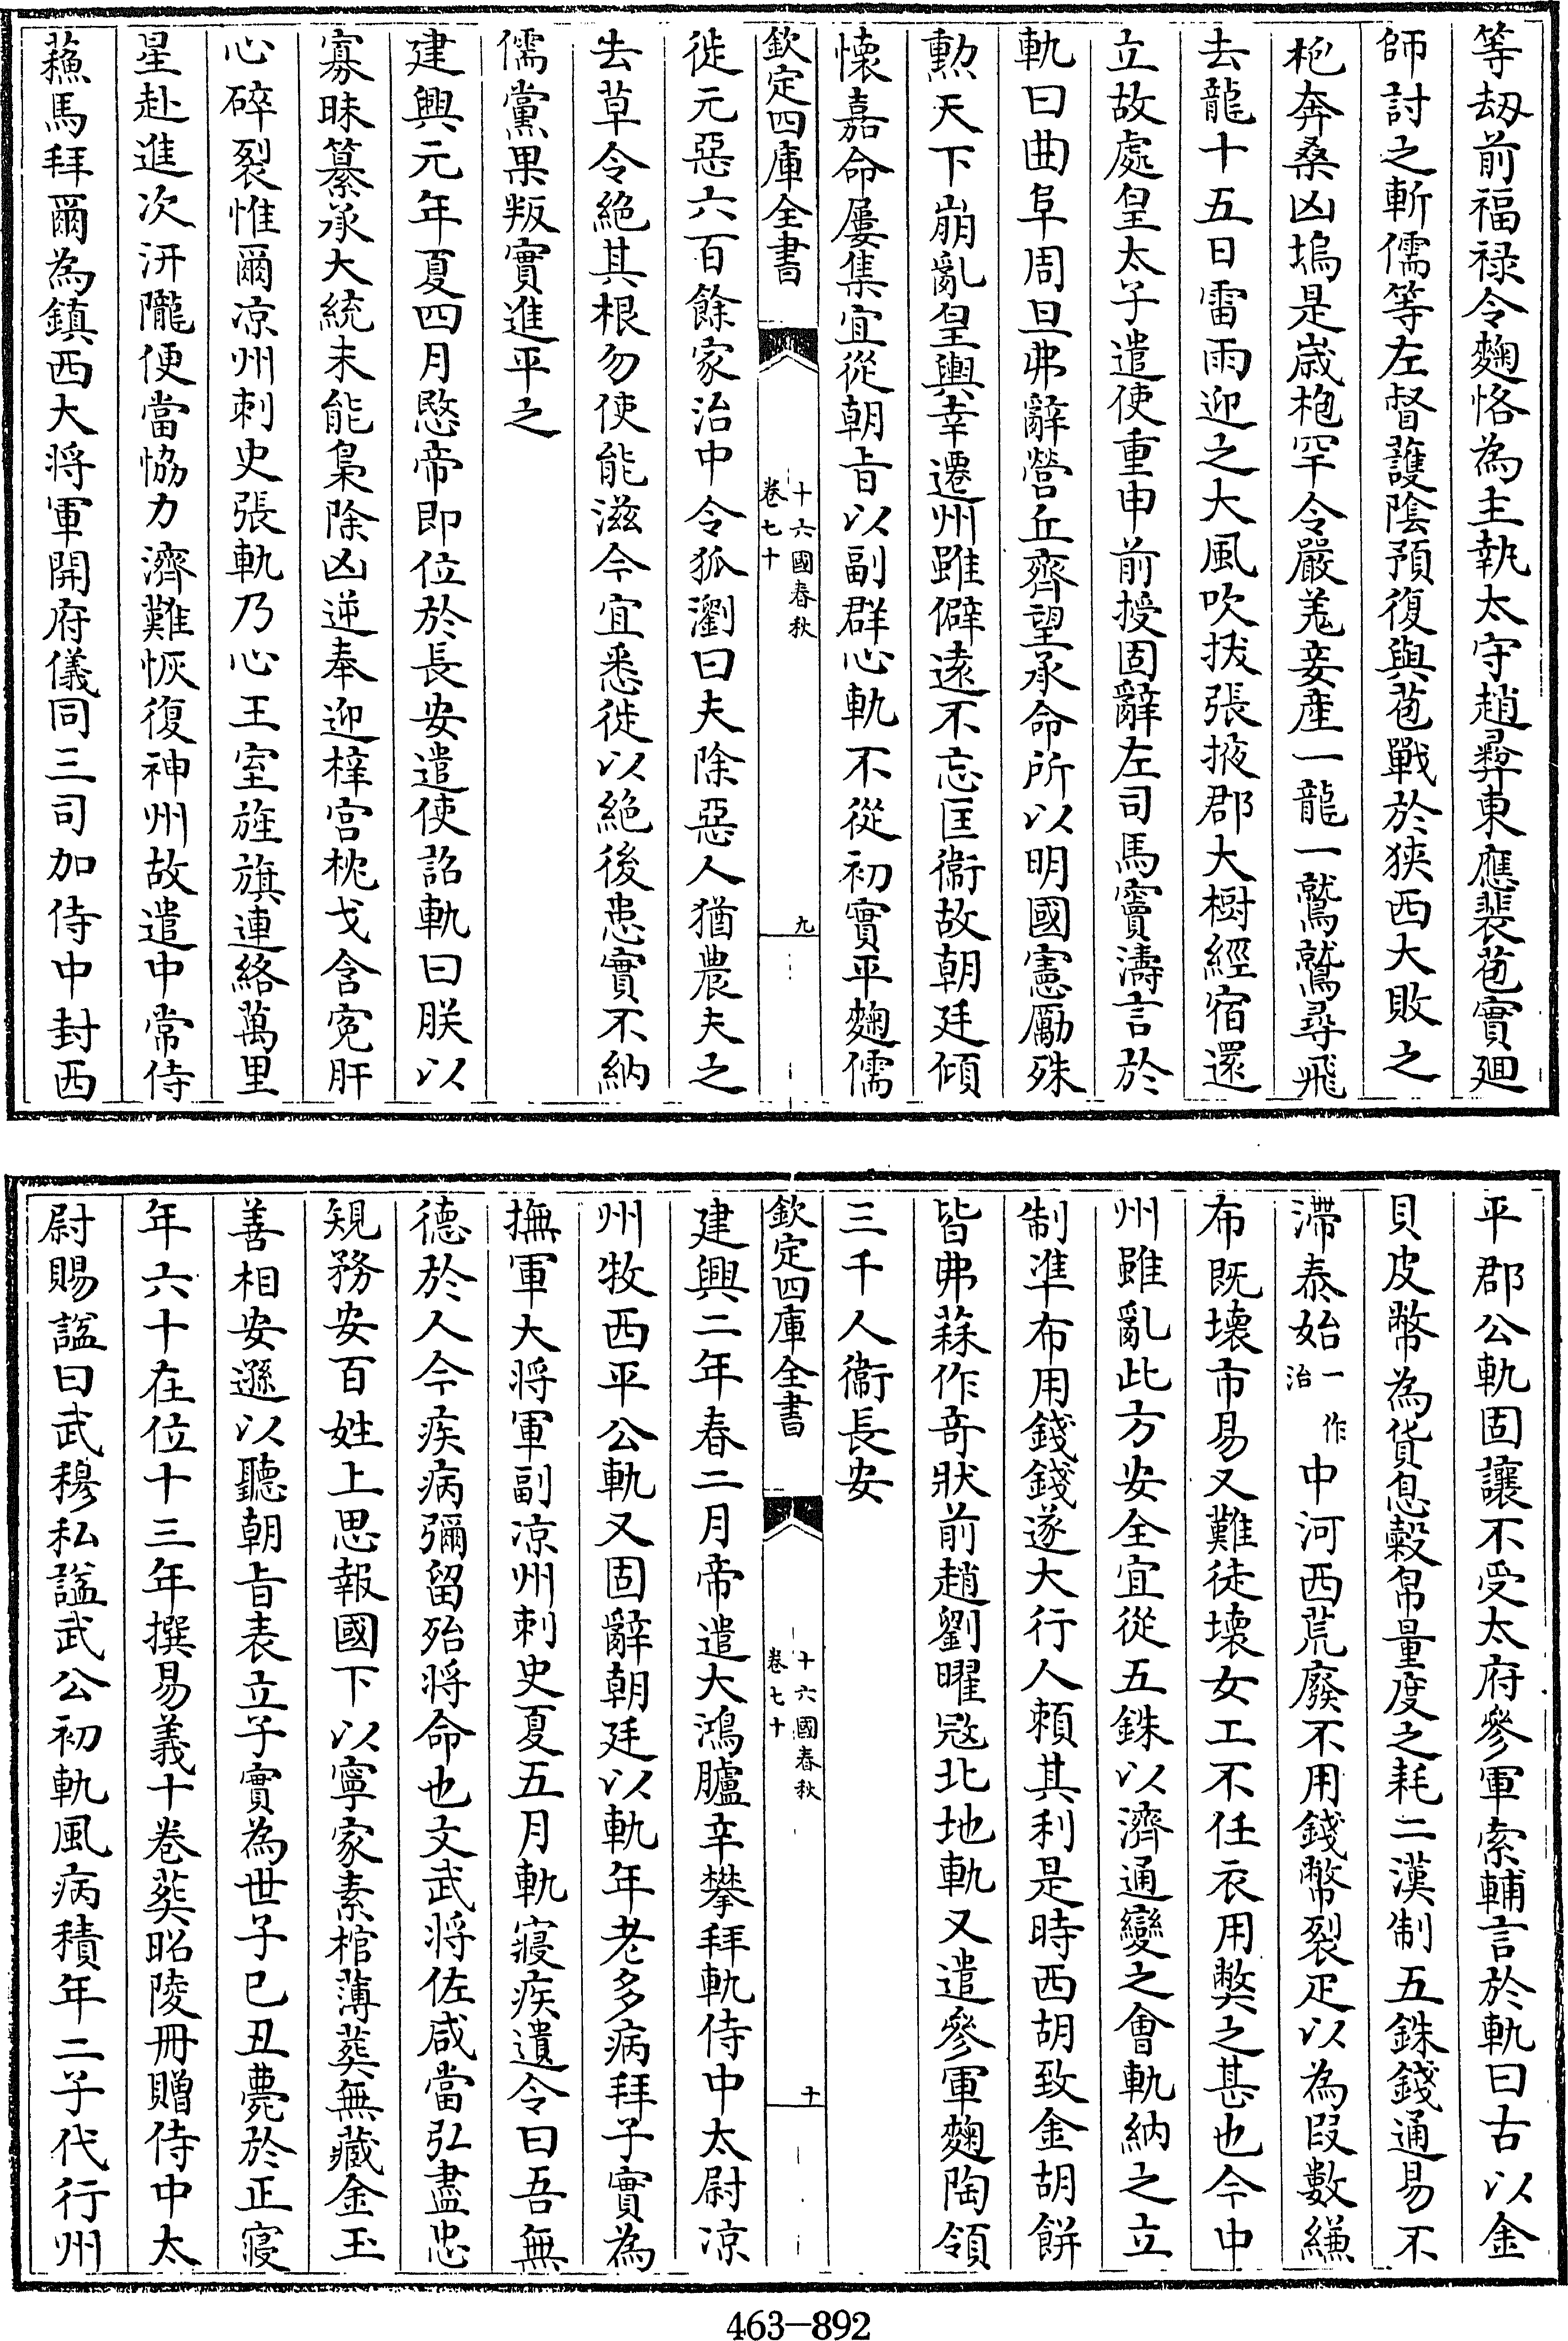 等刼前福禄令麴恪為主執太守趙彝東應裴苞實廻
師討之斬儒等左督護陰預復與苞戰於狹西大敗之
枹奔桑凶塢是歳枹罕令嚴羗妾産一龍一鷲鷲尋飛
去龍十五日雷雨迎之大風吹拔張掖郡大樹經宿還
立故處皇太子遣使重申前授固辭左司馬竇濤言於
軌曰曲阜周旦弗辭營丘齊望承命所以明國憲勵殊
勲天下崩亂皇輿幸遷州雖僻遠不忘匡衞故朝廷傾
懷嘉命屢集宜從朝㫖以副群心軌不從初實平麴儒
欽定四庫全書
十六國春秋
卷七十
九
徙元惡六百餘家治中令狐瀏曰夫除惡人猶農夫之
去草令絶其根勿使能滋今宜悉徙以絶後患實不納
儒黨果叛實進平之
建興元年夏四月愍帝即位於長安遣使詔軌曰朕以
寡昧纂承大統未能梟除凶逆奉迎梓宫枕戈含寃肝
心碎裂惟爾凉州刺史張軌乃心王室旌旗連絡萬里
星赴進次汧隴便當恊力濟難恢復神州故遣中常侍
蘓馬拜爾為鎮西大将軍開府儀同三司加侍中封西
平郡公軌固讓不受太府參軍索輔言於軌曰古以金
貝皮幣為貨息穀帛量度之耗二漢制五銖錢通易不
滯泰始一作治中河西荒廢不用錢幣裂疋以為叚數縑
布既壊市易又難徒壊女工不任衣用弊之甚也今中
州雖亂此方安全宜從五銖以濟通變之會軌納之立
制凖布用錢錢遂大行人頼其利是時西胡致金胡餅
皆弗菻作竒狀前趙劉曜宼北地軌又遣參軍麴陶領
三千人衞長安
欽定四庫全書
十六國春秋
卷七十
十
建興二年春二月帝遣大鴻臚辛攀拜軌侍中太尉凉
州牧西平公軌又固辭朝廷以軌年老多病拜子實為
撫軍大将軍副凉州刺史夏五月軌寢疾遺令曰吾無
德於人今疾病彌留殆将命也文武将佐咸當弘盡忠
規務安百姓上思報國下以寧家素棺薄葬無藏金玉
善相安遜以聽朝㫖表立子實為世子已丑薨於正寢
年六十在位十三年撰易義十卷葬昭陵冊贈侍中太
尉賜謚曰武穆私謚武公初軌風病積年二子代行州
463—892